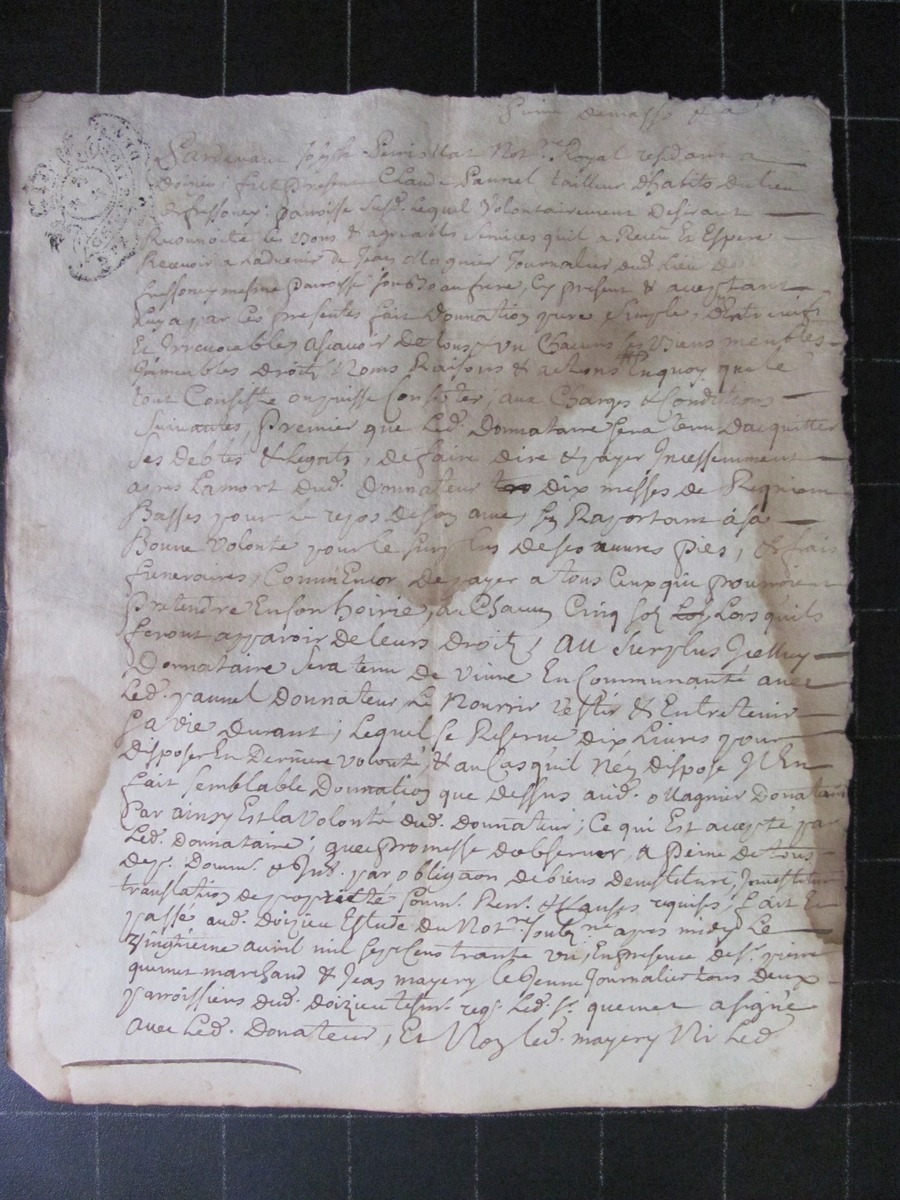 Pardevant Joseph Not.re Royal residant a
Doizieu fut Present Claude paunel tailleur d'habits du lieu
de fessoney parroisse susd. lequel Volontairement Desirant
Reconnoitre les Bons & agreables services quil a Receu Et Espere
Recevoir a Ladvenir de Jean Journalier dud. Lieu de
fessoney mesme parroisse son Beaufrere, Cy present & aceptant
Luy a par ces presentes fait Donnation pure simple, Entre vifs
Et Irrevocables ascavoir De tous Un Chacuns ses Biens meubles
Immeubles droits Noms Raisons & actions Enquoy que le
tout Consiste ou puisse Consister, aux Charges & Conditions
Suivantes, Premier que Led. Donnataire sera tenu Dacquitter
ses debtes & Legats, de faire dire & payer Incessemment
apres Lamort dud. Donnateur dix messes de Requiem
Basses pour Le repos de son ame, sen Raportant a sa
Bonne Volonté pour le surplus de ses œuvres pies, & frais
funeraires, Comm'Encor de payer a tous Ceux qui pourroient
Pretendre En son hoirie, a Chacun Cinq sol Lors quils
feront apparoir de leurs droits, Au surplus Icelluy
Donnataire sera tenu de vivre En Communauté avec
Led. paunel Donnateur Le Nourrir vestir & Entretenir
sa vie durant; Lequel se Reserve dix Livres pour
disposer En Derniere volonté, & au Cas quil Nen dispose Il En
fait semblable Donnation que dessus aud. Donataire
Par ainsy Est la Volonté dud. Donnateur; Ce qui Est acepté par
Led. Donnataire; avec promesse d'observer, a peine de tous
desp. Domm. & Int. par obligaon de biens
translation de proprieté soum. Ren. & Clauses requises, fait Et
passé aud. Doizieu Estude du Not.re soub.né apres midy Le
Vingtieme avril mil sept Cens trante un, En presence de s.r pierre
quemet marchand & Jean mayery le Jeune Journalie tous deux
parroissiens dud. doizieu Led. s.r quemet a signé
avec Led. Donateur, Et Non led. mayery Ni Led.